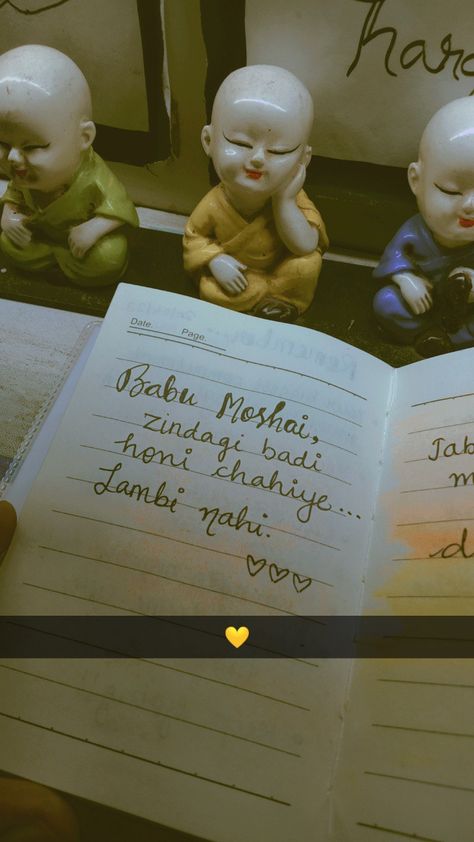 Date. Page.
Babu Moshai,
zindagi badi
honi chahiye...
Lambi nahi.